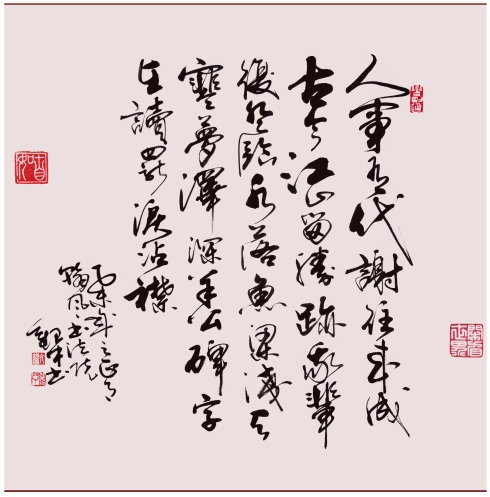 人事有代謝往來成
古今江山留勝跡我輩
復登臨水落魚梁淺天
寒夢澤深羊公碑字
在讀罷淚沾襟
未年之正月
風書法院
書